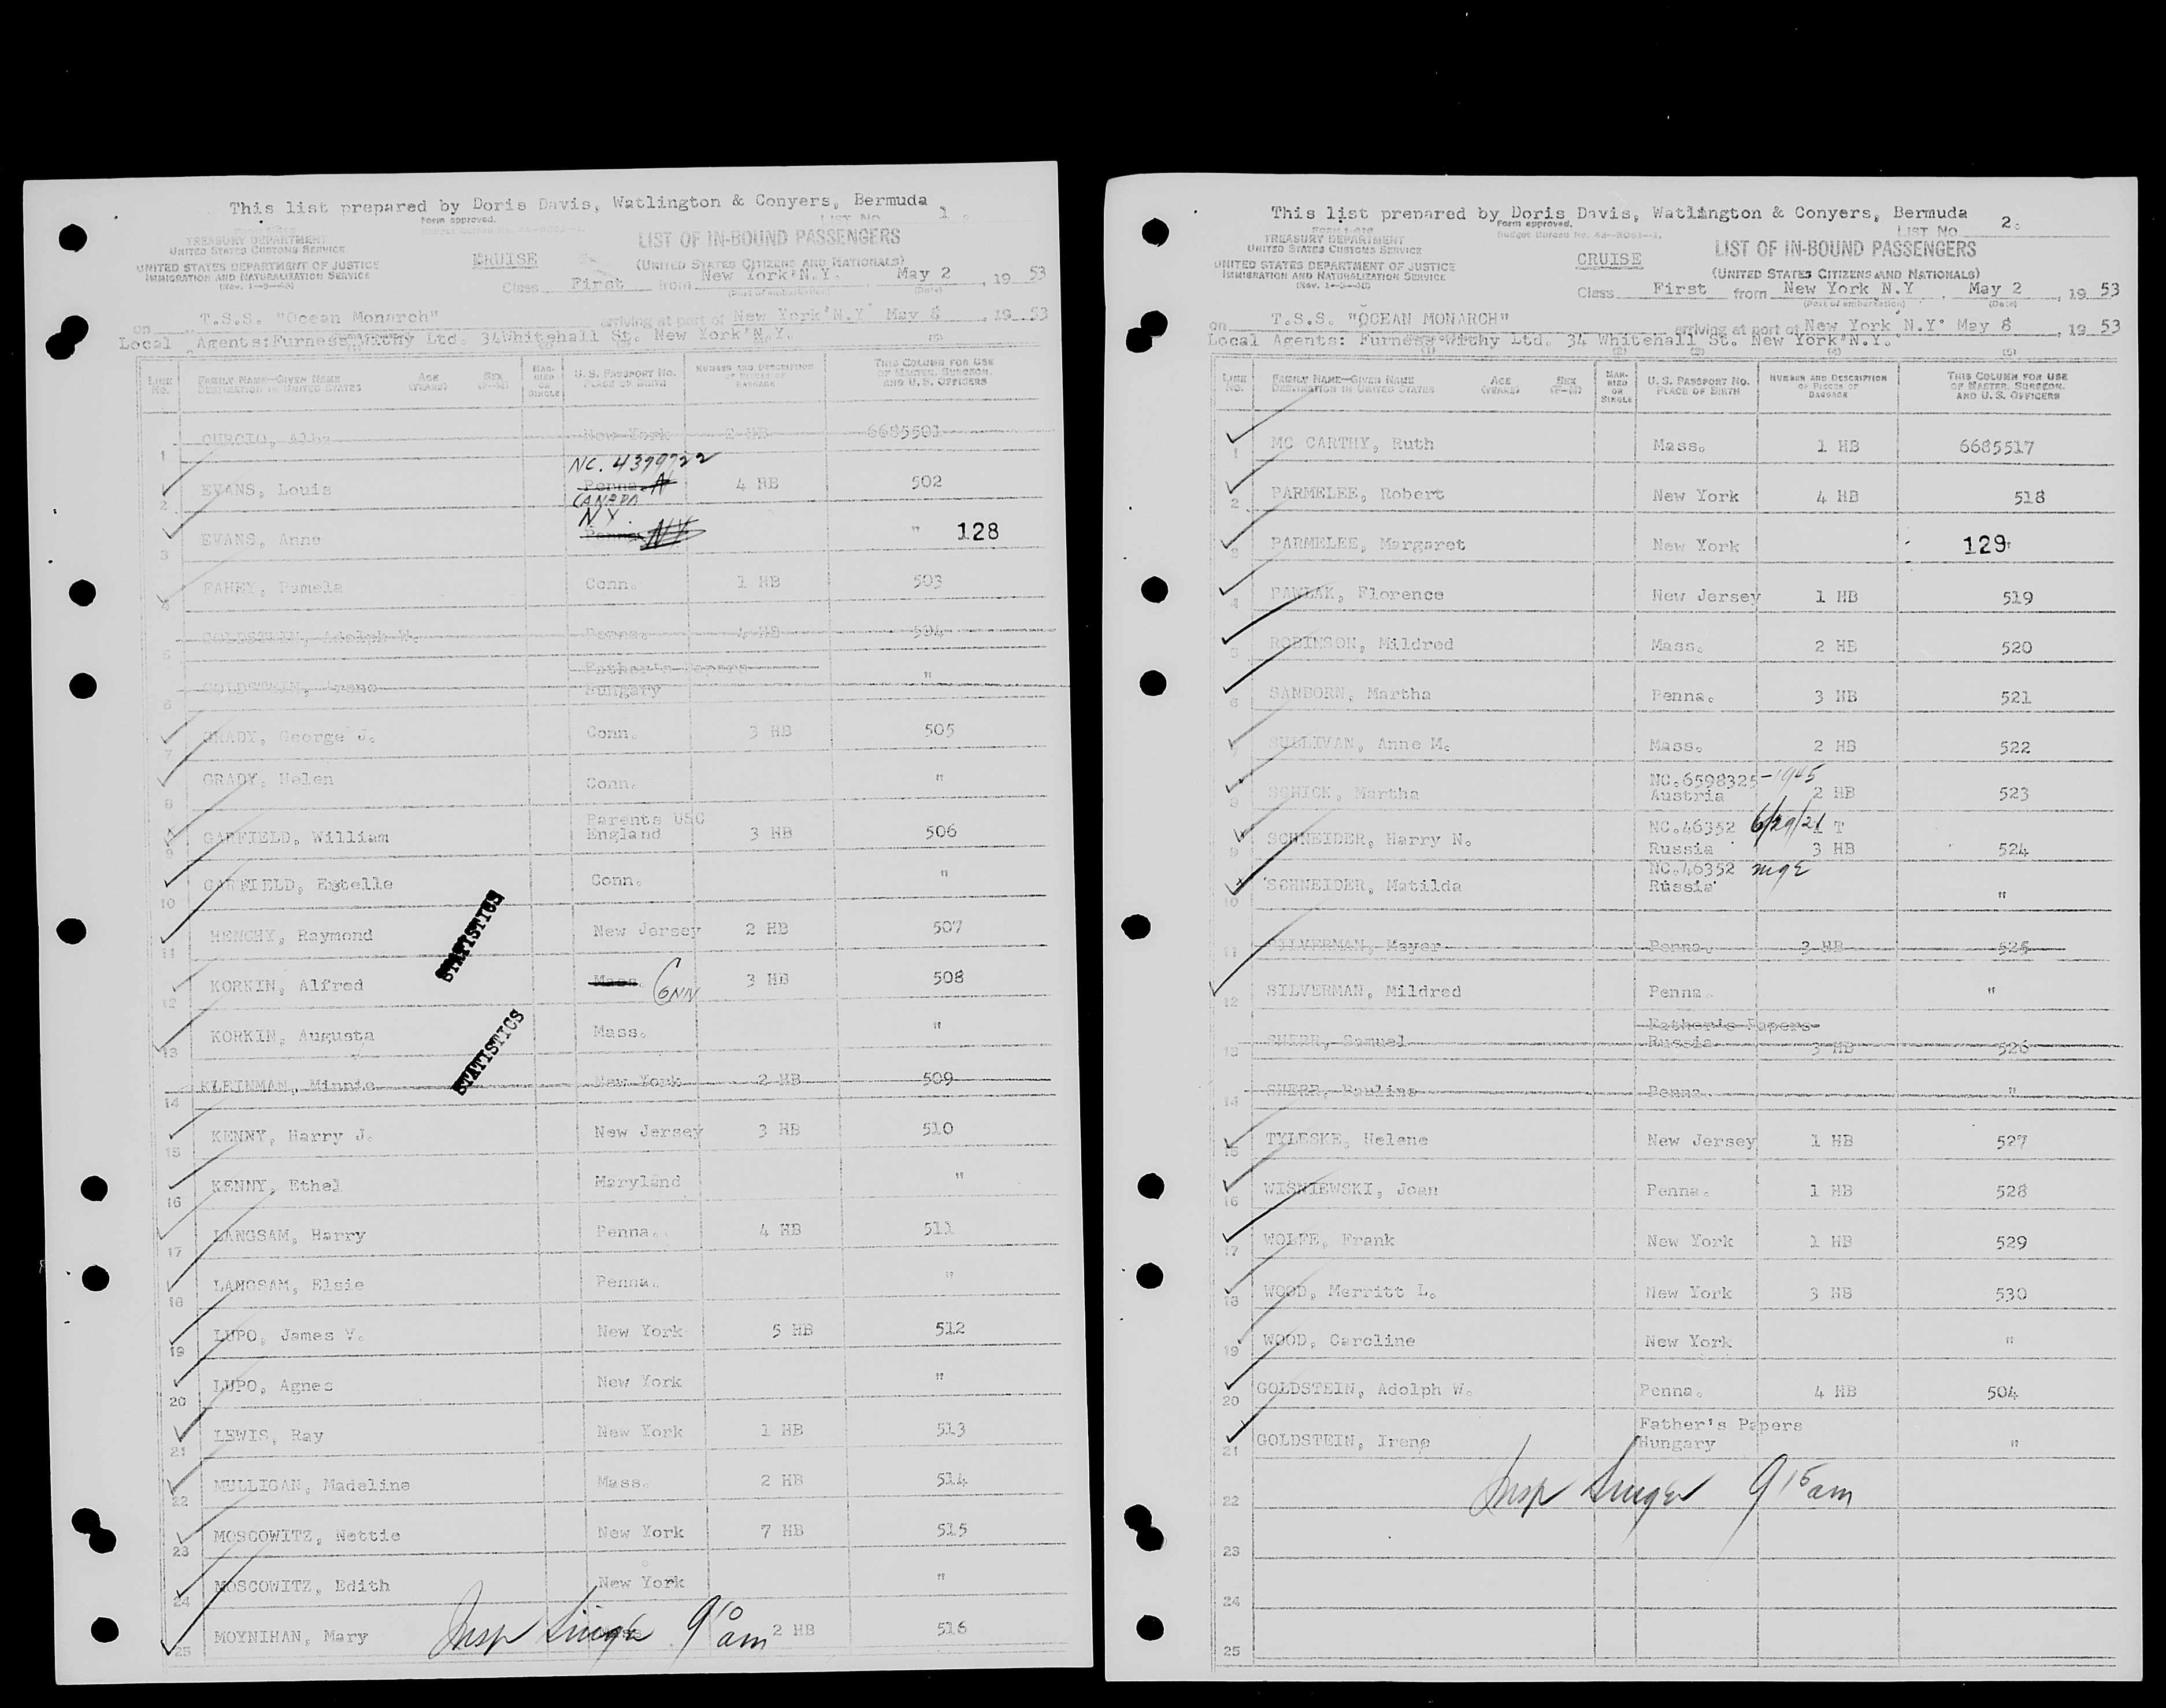 This list prepared by Doris Davis, Watlington & Conyers, Bermuda
Form approved.
LIST No. 1.
TREASURY DEPARTMENT
UNITED STATES CUSTOMS SERVICE
UNITED STATES DEPARTMENT OF JUSTICE
IMMIGRATION AND NATURALIZATION SERVICE
(Rev. 1-5-48)
CRUISE
LIST OF IN-BOUND PASSENGERS
(UNITED STATES CITIZENS AND NATIONALS)
Class First from New York N.Y. May 2, 19 53
(Port of embarkation) (Date)
on T.S.S. "Ocean Monarch" arriving at port of New York N.Y May 8, 19 53
Local Agents: Furness Withy Ltd. 34 Whitehall St. New York N.Y.
LINE No. FAMILY NAME—GIVEN NAME DESTINATION IN UNITED STATES AGE (YEARS) SEX (F-M) MARRIED OR SINGLE U.S. PASSPORT No. PLACE OF BIRTH NUMBER AND DESCRIPTION OF PIECES OF BAGGAGE THIS COLUMN FOR USE OF MASTER, SURGEON, AND U.S. OFFICERS
1 CURCIO, Alba New York 2 HB 6685501
NC. 4379722
2 EVANS, Louis Penna. N 4 HB 502
CANADA
N.Y.
3 EVANS, Anne Penna. NY " 128
4 FAHEY, Pamela Conn. 1 HB 503
5 GOLDSTEIN, Adolph W. Penna. 4 HB 504
Father's Papers
6 GOLDSTEIN, Irene Hungary "
7 GRADY, George J. Conn. 3 HB 505
8 GRADY, Helen Conn. "
Parents USC
9 GARFIELD, William England 3 HB 506
10 GARFIELD, Estelle Conn. "
11 HENCHY, Raymond New Jersey 2 HB 507
STATISTICS
12 KORKIN, Alfred Mass. CONN 3 HB 508
13 KORKIN, Augusta Mass. "
STATISTICS
14 KLEINMAN, Minnie New York 2 HB 509
15 KENNY, Harry J. New Jersey 3 HB 510
16 KENNY, Ethel Maryland "
17 LANGSAM, Harry Penna. 4 HB 511
18 LANGSAM, Elsie Penna. "
19 LUPO, James V. New York 5 HB 512
20 LUPO, Agnes New York "
21 LEWIS, Ray New York 1 HB 513
22 MULLIGAN, Madeline Mass. 2 HB 514
23 MOSCOWITZ, Nettie New York 7 HB 515
24 MOSCOWITZ, Edith New York "
25 MOYNIHAN, Mary 2 HB 516
Insp Singer 9 10 am
This list prepared by Doris Davis, Watlington & Conyers, Bermuda
Form approved.
Budget Bureau No. 43-R061-1.
LIST No 2.
TREASURY DEPARTMENT
UNITED STATES CUSTOMS SERVICE
UNITED STATES DEPARTMENT OF JUSTICE
IMMIGRATION AND NATURALIZATION SERVICE
(Rev. 1-5-48)
CRUISE
LIST OF IN-BOUND PASSENGERS
(UNITED STATES CITIZENS AND NATIONALS)
Class First from New York N.Y. May 2, 19 53
(Port of embarkation) (Date)
on T.S.S. "OCEAN MONARCH" arriving at port of New York N.Y. May 8, 19 53
Local Agents: Furness Withy Ltd. 34 Whitehall St. New York N.Y.
(1) (2) (3) (4) (5)
LINE No. FAMILY NAME—GIVEN NAME DESTINATION IN UNITED STATES AGE (YEARS) SEX (F-M) MARRIED OR SINGLE U.S. PASSPORT No. PLACE OF BIRTH NUMBER AND DESCRIPTION OF PIECES OF BAGGAGE THIS COLUMN FOR USE OF MASTER, SURGEON, AND U.S. OFFICERS
1 MC CARTHY, Ruth Mass. 1 HB 6685517
2 PARMELEE, Robert New York 4 HB 518
3 PARMELEE, Margaret New York 129 "
4 PAWLAK, Florence New Jersey 1 HB 519
5 ROBINSON, Mildred Mass. 2 HB 520
6 SANBORN, Martha Penna. 3 HB 521
7 SULLIVAN, Anne M. Mass. 2 HB 522
NC.6598325-1945
8 SCHICK, Martha Austria 2 HB 523
NC.46352 6/29/21 1 T
9 SCHNEIDER, Harry N. Russia 3 HB 524
NC.46352 mge
10 SCHNEIDER, Matilda Russia "
11 SILVERMAN, Mayer Penna. 3 HB 525
12 SILVERMAN, Mildred Penna. "
Father's Papers
13 SHERR, Samuel Russia 3 HB 526
14 SHERR, Pauline Penna. "
15 TYLESKE, Helene New Jersey 1 HB 527
16 WISNIEWSKI, Joan Penna. 1 HB 528
17 WOLFE, Frank New York 1 HB 529
18 WOOD, Merritt L. New York 3 HB 530
19 WOOD, Caroline New York "
20 GOLDSTEIN, Adolph W. Penna. 4 HB 504
Father's Papers
21 GOLDSTEIN, Irene Hungary "
22
Insp Singer 9 15 am
23
24
25